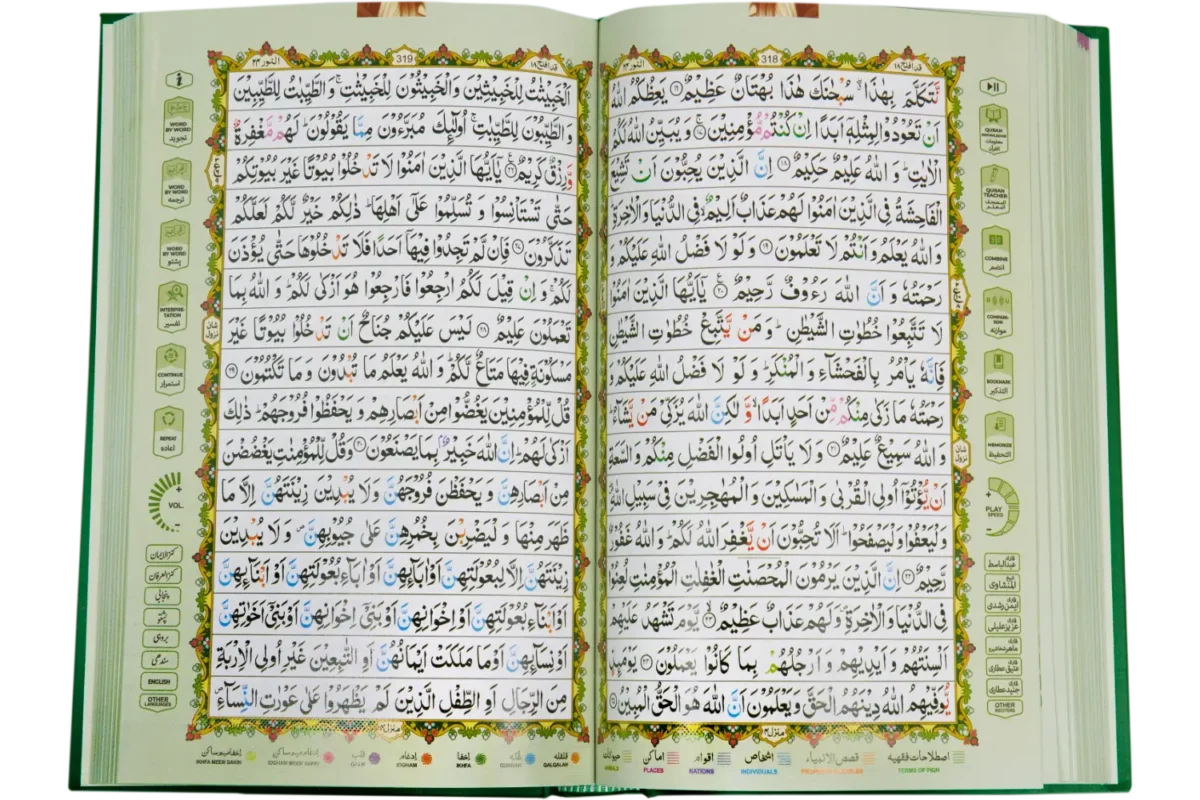 قد افلح ١٨
318
النور ٢٤
تَّتَكَلَّمَ بِهٰذَا ۖ سُبْحٰنَكَ هٰذَا بُهْتَانٌ عَظِيْمٌ ۝١٦ يَعِظُكُمُ اللّٰهُ
اَنْ تَعُوْدُوْا لِمِثْلِهٖۤ اَبَدًا اِنْ كُنْتُمْ مُّؤْمِنِيْنَ ۝١٧ وَ يُبَيِّنُ اللّٰهُ لَكُمُ
الْاٰيٰتِ ؕ وَ اللّٰهُ عَلِيْمٌ حَكِيْمٌ ۝١٨ اِنَّ الَّذِيْنَ يُحِبُّوْنَ اَنْ تَشِيْعَ
الْفَاحِشَةُ فِی الَّذِيْنَ اٰمَنُوْا لَهُمْ عَذَابٌ اَلِيْمٌ ۙ فِی الدُّنْيَا وَ الْاٰخِرَةِ ؕ
وَ اللّٰهُ يَعْلَمُ وَ اَنْتُمْ لَا تَعْلَمُوْنَ ۝١٩ وَ لَوْ لَا فَضْلُ اللّٰهِ عَلَيْكُمْ وَ
رَحْمَتُهٗ وَ اَنَّ اللّٰهَ رَءُوْفٌ رَّحِيْمٌ ۝٢٠ يٰۤاَيُّهَا الَّذِيْنَ اٰمَنُوْا
لَا تَتَّبِعُوْا خُطُوٰتِ الشَّيْطٰنِ ؕ وَ مَنْ يَّتَّبِعْ خُطُوٰتِ الشَّيْطٰنِ
فَاِنَّهٗ يَاْمُرُ بِالْفَحْشَآءِ وَ الْمُنْكَرِ ؕ وَ لَوْ لَا فَضْلُ اللّٰهِ عَلَيْكُمْ وَ
رَحْمَتُهٗ مَا زَكٰى مِنْكُمْ مِّنْ اَحَدٍ اَبَدًا ۙ وَّ لٰكِنَّ اللّٰهَ يُزَكِّیْ مَنْ يَّشَآءُ ؕ
وَ اللّٰهُ سَمِيْعٌ عَلِيْمٌ ۝٢١ وَ لَا يَاْتَلِ اُولُوا الْفَضْلِ مِنْكُمْ وَ السَّعَةِ
اَنْ يُّؤْتُوْۤا اُولِی الْقُرْبٰى وَ الْمَسٰكِيْنَ وَ الْمُهٰجِرِيْنَ فِیْ سَبِيْلِ اللّٰهِ ۖ
وَ لْيَعْفُوْا وَ لْيَصْفَحُوْا ؕ اَلَا تُحِبُّوْنَ اَنْ يَّغْفِرَ اللّٰهُ لَكُمْ ؕ وَ اللّٰهُ غَفُوْرٌ
رَّحِيْمٌ ۝٢٢ اِنَّ الَّذِيْنَ يَرْمُوْنَ الْمُحْصَنٰتِ الْغٰفِلٰتِ الْمُؤْمِنٰتِ لُعِنُوْا
فِی الدُّنْيَا وَ الْاٰخِرَةِ ۪ وَ لَهُمْ عَذَابٌ عَظِيْمٌ ۝٢٣ يَّوْمَ تَشْهَدُ عَلَيْهِمْ
اَلْسِنَتُهُمْ وَ اَيْدِيْهِمْ وَ اَرْجُلُهُمْ بِمَا كَانُوْا يَعْمَلُوْنَ ۝٢٤ يَوْمَئِذٍ
يُّوَفِّيْهِمُ اللّٰهُ دِيْنَهُمُ الْحَقَّ وَ يَعْلَمُوْنَ اَنَّ اللّٰهَ هُوَ الْحَقُّ الْمُبِيْنُ ۝٢٥
منزل ٤
QURAN
KNOWLEDGE
QURAN
TEACHER
COMBINE
COMPARI-
SON
موازنه
BOOKMARK
التذكير
MEMORIZE
التحفيظ
شان
نزول
PLAY
SPEED
عبدالباسط
المنشاوی
ایمن رشدی
عزیز علیلی
عتیق عطاری
جنید عطاری
OTHER
RECITERS
اصطلاحات فقهیه
TERMS OF FIQH
قصص الانبیاء
اشخاص
INDIVIDUALS
اقوام
NATIONS
اماكن
PLACES
قد افلح ١٨
319
النور ٢٤
اَلْخَبِيْثٰتُ لِلْخَبِيْثِيْنَ وَ الْخَبِيْثُوْنَ لِلْخَبِيْثٰتِ ۚ وَ الطَّيِّبٰتُ لِلطَّيِّبِيْنَ
وَ الطَّيِّبُوْنَ لِلطَّيِّبٰتِ ۚ اُولٰٓئِكَ مُبَرَّءُوْنَ مِمَّا يَقُوْلُوْنَ ؕ لَهُمْ مَّغْفِرَةٌ
وَّ رِزْقٌ كَرِيْمٌ ۝٢٦ يٰۤاَيُّهَا الَّذِيْنَ اٰمَنُوْا لَا تَدْخُلُوْا بُيُوْتًا غَيْرَ بُيُوْتِكُمْ
حَتّٰى تَسْتَاْنِسُوْا وَ تُسَلِّمُوْا عَلٰۤى اَهْلِهَا ؕ ذٰلِكُمْ خَيْرٌ لَّكُمْ لَعَلَّكُمْ
تَذَكَّرُوْنَ ۝٢٧ فَاِنْ لَّمْ تَجِدُوْا فِيْهَاۤ اَحَدًا فَلَا تَدْخُلُوْهَا حَتّٰى يُؤْذَنَ
لَكُمْ ۚ وَ اِنْ قِيْلَ لَكُمُ ارْجِعُوْا فَارْجِعُوْا هُوَ اَزْكٰى لَكُمْ ؕ وَ اللّٰهُ بِمَا
تَعْمَلُوْنَ عَلِيْمٌ ۝٢٨ لَيْسَ عَلَيْكُمْ جُنَاحٌ اَنْ تَدْخُلُوْا بُيُوْتًا غَيْرَ
مَسْكُوْنَةٍ فِيْهَا مَتَاعٌ لَّكُمْ ؕ وَ اللّٰهُ يَعْلَمُ مَا تُبْدُوْنَ وَ مَا تَكْتُمُوْنَ ۝٢٩
قُلْ لِّلْمُؤْمِنِيْنَ يَغُضُّوْا مِنْ اَبْصَارِهِمْ وَ يَحْفَظُوْا فُرُوْجَهُمْ ؕ ذٰلِكَ
اَزْكٰى لَهُمْ ؕ اِنَّ اللّٰهَ خَبِيْرٌۢ بِمَا يَصْنَعُوْنَ ۝٣٠ وَ قُلْ لِّلْمُؤْمِنٰتِ يَغْضُضْنَ
مِنْ اَبْصَارِهِنَّ وَ يَحْفَظْنَ فُرُوْجَهُنَّ وَ لَا يُبْدِيْنَ زِيْنَتَهُنَّ اِلَّا مَا
ظَهَرَ مِنْهَا وَ لْيَضْرِبْنَ بِخُمُرِهِنَّ عَلٰى جُيُوْبِهِنَّ ۪ وَ لَا يُبْدِيْنَ
زِيْنَتَهُنَّ اِلَّا لِبُعُوْلَتِهِنَّ اَوْ اٰبَآئِهِنَّ اَوْ اٰبَآءِ بُعُوْلَتِهِنَّ اَوْ اَبْنَآئِهِنَّ
اَوْ اَبْنَآءِ بُعُوْلَتِهِنَّ اَوْ اِخْوَانِهِنَّ اَوْ بَنِیْۤ اِخْوَانِهِنَّ اَوْ بَنِیْۤ اَخَوٰتِهِنَّ
اَوْ نِسَآئِهِنَّ اَوْ مَا مَلَكَتْ اَيْمَانُهُنَّ اَوِ التّٰبِعِيْنَ غَيْرِ اُولِی الْاِرْبَةِ
مِنَ الرِّجَالِ اَوِ الطِّفْلِ الَّذِيْنَ لَمْ يَظْهَرُوْا عَلٰى عَوْرٰتِ النِّسَآءِ ۪
منزل ٤
WORD
BY WORD
تجوید
WORD
BY WORD
ترجمه
WORD
BY WORD
پشتو
INTERPRE-
TATION
تفسیر
CONTINUE
استمرار
REPEAT
اعاده
شان
نزول
VOL.
کنز الایمان
کنز العرفان
پنجابی
پشتو
بروہی
سندھی
ENGLISH
OTHER
LANGUAGES
قلقله
QALQALAH
غنّه
GHUNNAH
اخفا
IKHFA
ادغام
IDGHAM
قلب
QALB
ادغام میم ساکن
IDGHAM MEEM SAKIN
اخفا میم ساکن
IKHFA MEEM SAKIN